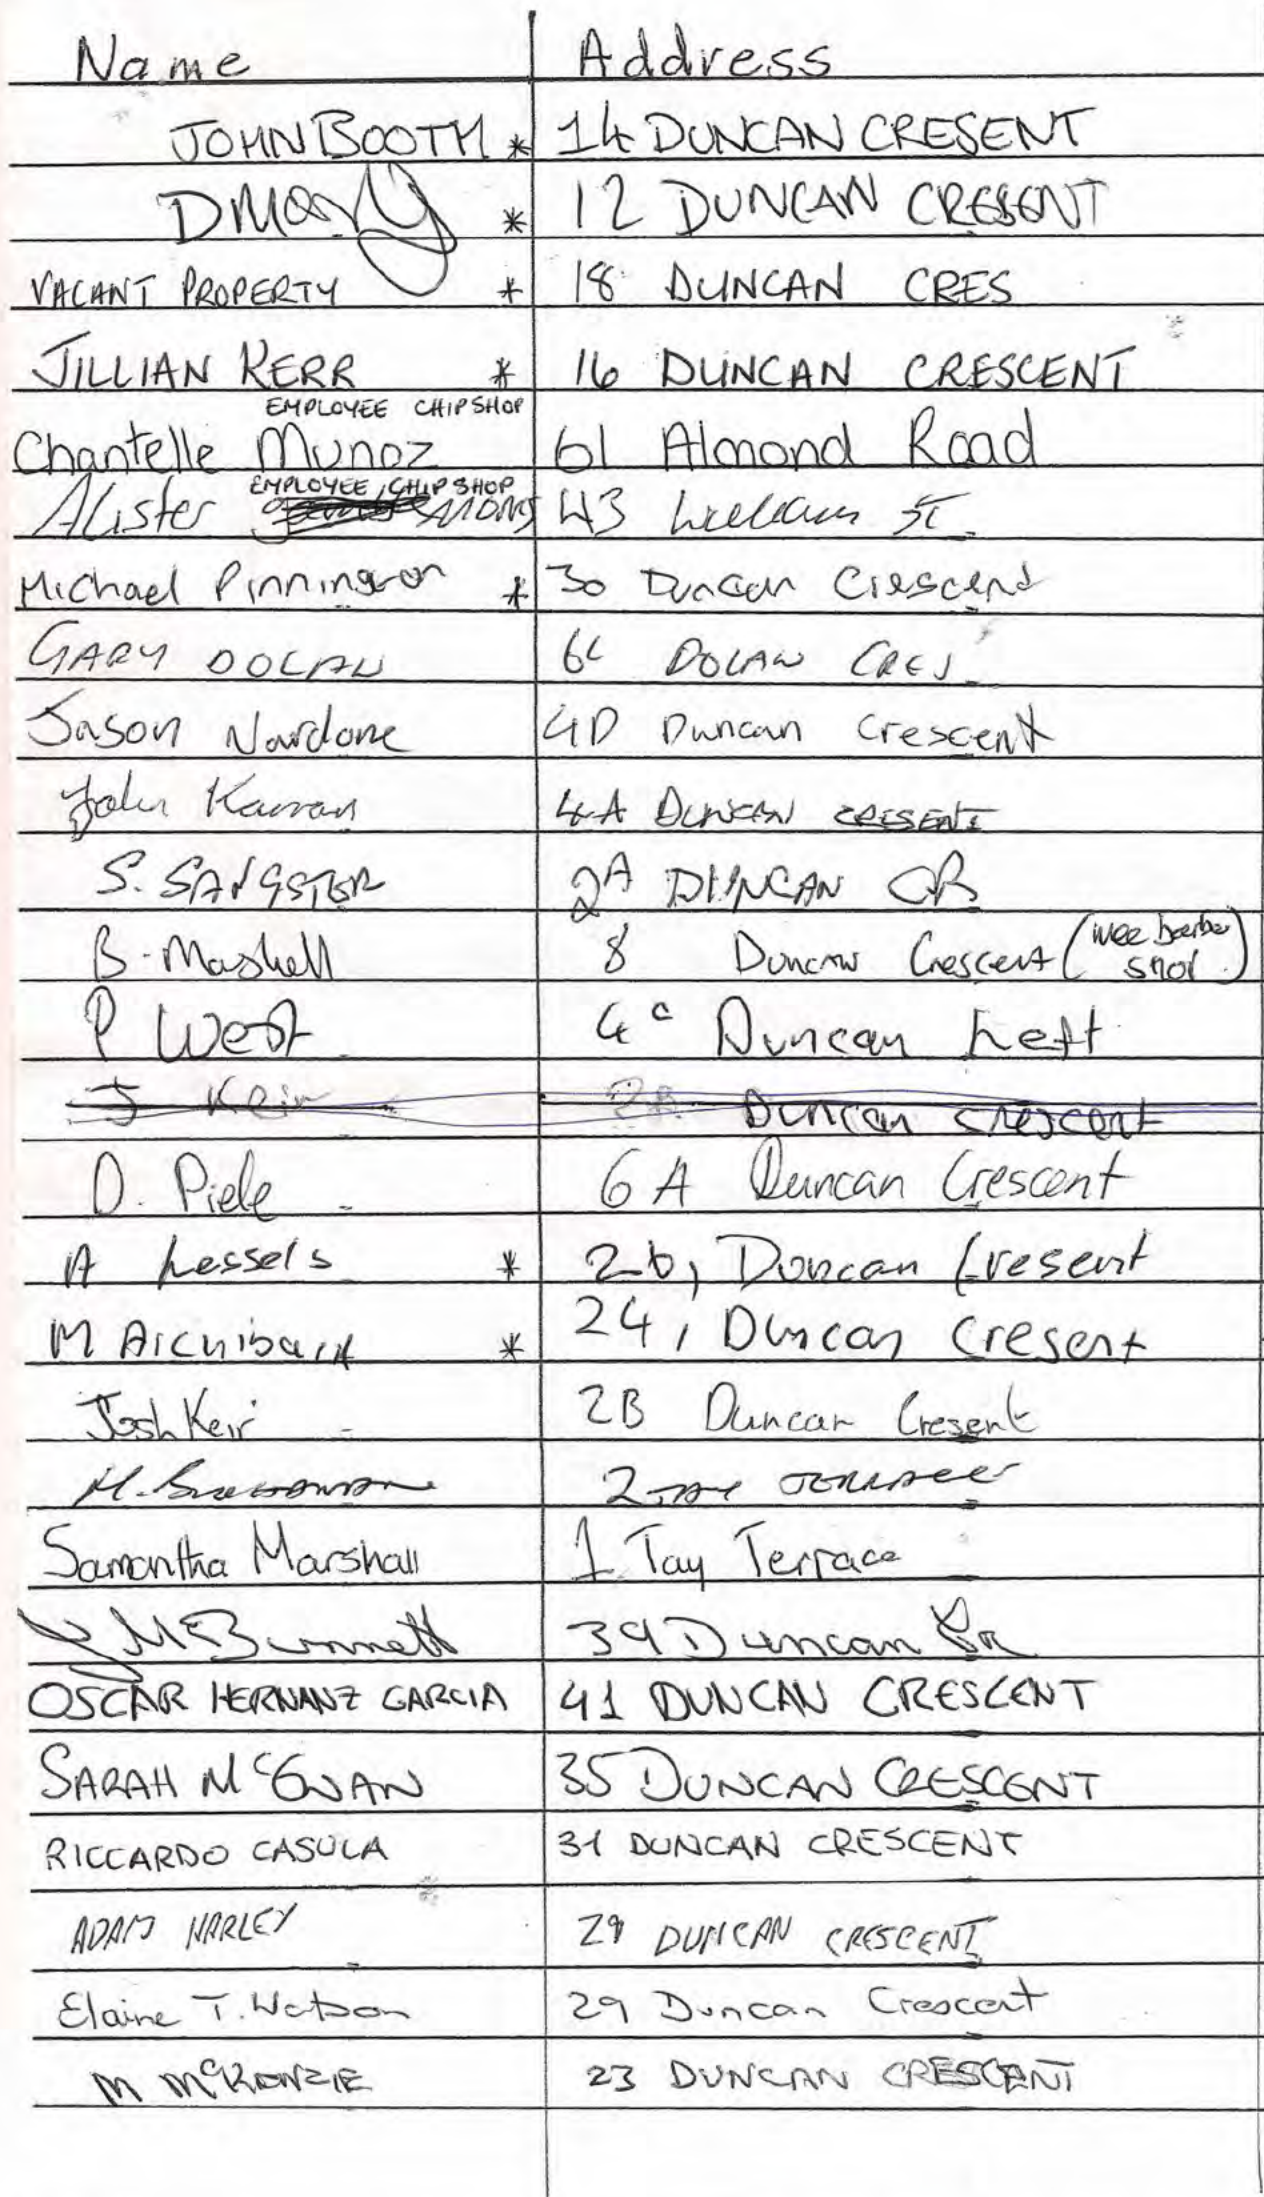 Name Address
JOHN BOOTH * 14 DUNCAN CRESENT
DMary * 12 DUNCAN CRESENT
VACANT PROPERTY * 18 DUNCAN CRES
JILLIAN KERR * 16 DUNCAN CRESCENT
EMPLOYEE CHIPSHOP
Chantelle Munoz 61 Almond Road
EMPLOYEE CHIPSHOP
Alister 43 William ST.
Michael Pinnington * 30 Duncan Crescent
GARY DOLAN 6C DOLAN CRES
Jason Nardone 4D Duncan Crescent
John Karran 4A DUNCAN CRESENT
S. SANGSTER 2A DUNCAN CR
B. Maskell 8 Duncan Crescent (wee barber shop)
P West 4c Duncan Left
J Keir 2B Duncan crescent
D. Piele 6A Duncan Crescent
A Lessels * 26, Duncan Cresent
M Archibald * 24, Duncan Cresent
Josh Keir 2B Duncan Cresent
M. 2 TAY TERRACE
Samantha Marshall 1 Tay Terrace
McBunnett 39 Duncan Cr
OSCAR HERNANZ GARCIA 41 DUNCAN CRESCENT
SARAH McEWAN 35 DUNCAN CRESCENT
RICCARDO CASULA 31 DUNCAN CRESCENT
ADAM HARLEY 29 DUNCAN CRESCENT
Elaine T. Watson 29 Duncan Crescent
M McKENZIE 23 DUNCAN CRESCENT